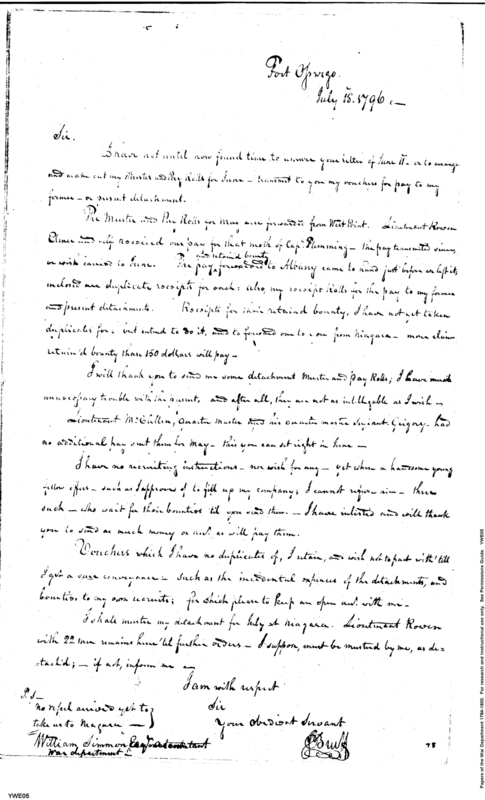 Fort Oswego.
July 15. 1796.
Sir.
I have not until now found time to answer your letter of June 11th or to arrange
and make out my Muster and Pay Rolls for June – transmit to you my vouchers for pay to my
former – or present detachment.
The Muster and Pay Rolls for May were forwarded from West Point. Lieutenant Rowen
Elmer and self received our pay for that month of Capt. Flemming – the pay transmitted since,
or with carried to June. The pay, and retained bounty forwarded to Albany came to hand just before we left it;
inclosed are duplicate receipts for each: also, my receipt Rolls for the pay to my former
and present detachments. Receipts for their retained bounty, I have not yet taken
duplicates for; but intend to do it, and to forward one to you from Niagara – more claim
retain'd bounty than 150 dollars will pay –
I will thank you to send me some detachment Muster and Pay Rolls; I have much
unnecessary trouble with the present, and after all, they are not as intelligible as I wish –
Lieutenant McClallen, Quarter Master and his Quarter master Serjeant Grigory had
no additional pay sent them for May – this you can set right in June –
I have no recruiting instructions – nor wish for any – yet when a handsome young
fellow offers – such as I approve of to fill up my company; I cannot refuse him – three
such – who wait for their bounties til you send them – I have inlisted and will thank
you to send as much money or as will pay them.
Vouchers which I have no duplicates of, I retain, and wish not to part with 'till
I get a sure conveyance – such as the incidental expences of the detachments, and
bounties to my own recruits; for which please to keep an open acct. with me –
I shall muster my detachment for July at Niagara. Lieutenant Rowen
with 22 men remains here 'til further orders – I suppose, must be mustered by me, as de-
tach'd; – if not, inform me –
I am with respect
Sir
Your obedient Servant
P.S –
no vessel arrived yet to
take us to Niagara –
William Simmons Esqr. Accountant
War department
78
YWE05
Papers of the War Department 1784-1800. For research and instructional use only. See Permissions Guide YWE05